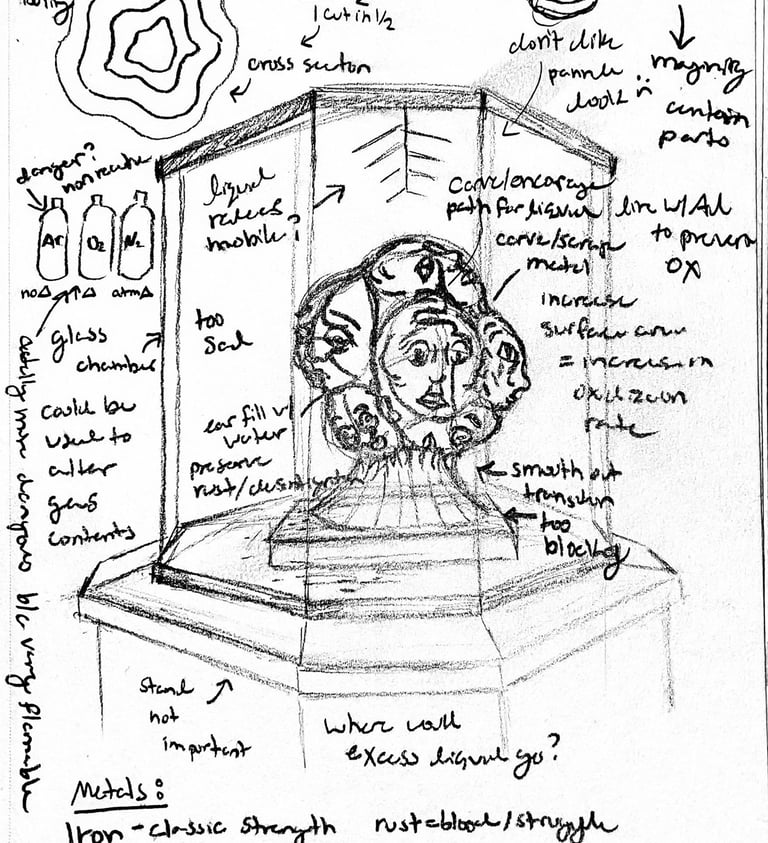 1 cut in 1/2
cross section
don't like
pannel
look
contain
parts
danger?
non reactive
Ar
O2
N2
no△
↑△
atm△
liquid
makes
mobile?
carve/encourage
path for liquid
carve/scrape
metal
line w/ Au
to prevent
ox
increase
surface area
= increase in
oxidization
rate
too
sad
glass
chamber
could be
used to
alter
gas
contents
actually more dangerous b/c very flammable
ear fill w/
water
preserve
rust/
smooth out
transition
too
blocky
stand
not
important
Where will
excess liquid go?
Metals:
Iron - classic strength
rust = blood/struggle